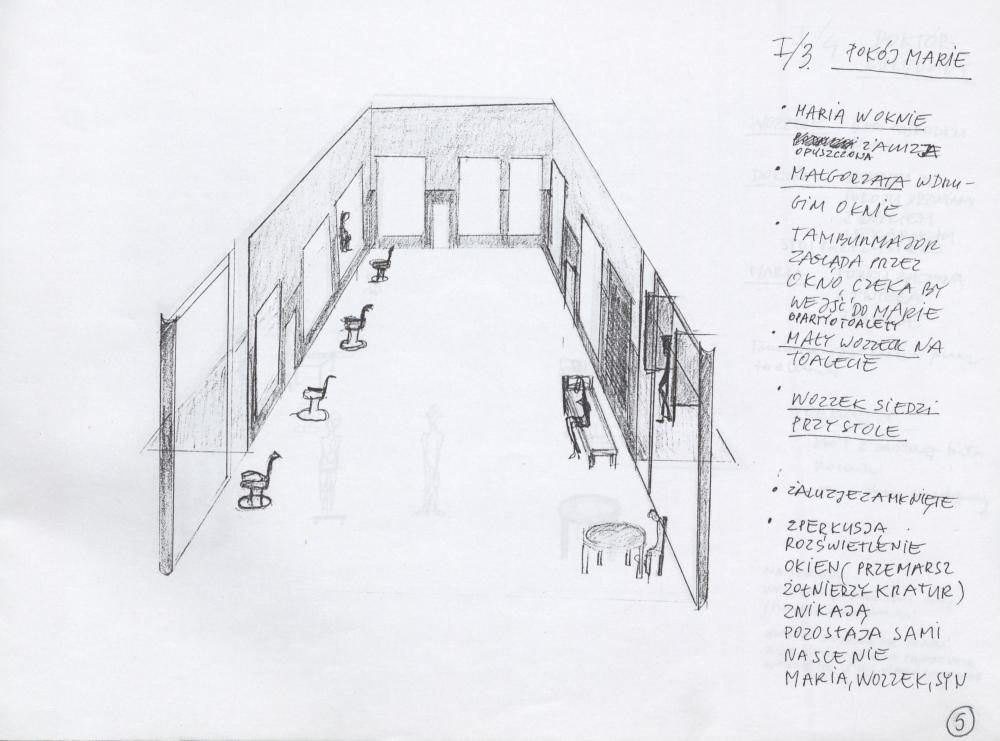 I/3. POKÓJ MARIE
• MARIA W OKNIE
ŻALUZJA
OPUSZCZONA
• MAŁGORZATA W DRU-
GIM OKNIE
• TAMBURMAJOR
ZAGLĄDA PRZEZ
OKNO, CZEKA BY
WEJŚĆ DO MARIE
OPARTY O TOALETY
• MAŁY WOZZECK NA
TOALECIE
• WOZZEK SIEDZI
PRZY STOLE
• ŻALUZJE ZAMKNIĘTE
• Z PERKUSJĄ
ROZŚWIETLENIE
OKIEN (PRZEMARSZ
ŻOŁNIERZY KRATUR)
ZNIKAJĄ
POZOSTAJĄ SAMI
NA SCENIE
MARIA, WOZZEK, SYN
5